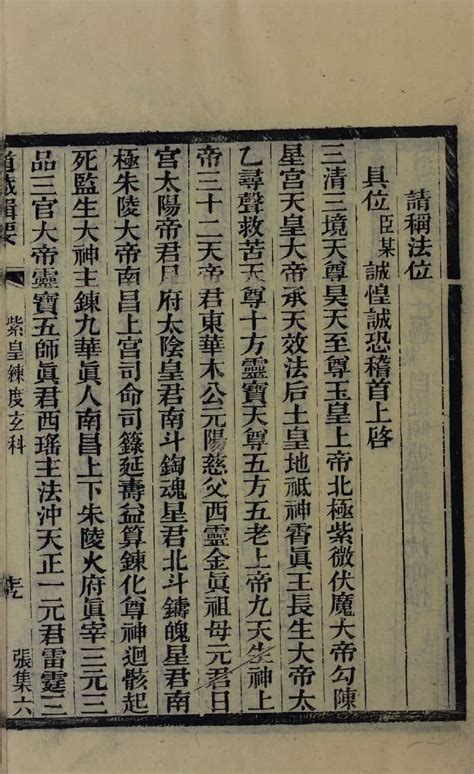 請稱法位
具位臣某誠惶誠恐稽首上啓
三清三境天尊昊天至尊玉皇上帝北極紫微伏魔大帝勾陳
星宮天皇大帝承天效法后土皇地祇神霄眞王長生大帝太
乙尋聲救苦天尊十方靈寶天尊五方五老上帝九天生神上
帝三十二天帝君東華木公元陽慈父西靈金眞祖母元君日
宮太陽帝君月府太陰皇君南斗鍧魂星君北斗鑄魄星君南
極朱陵大帝南昌上宮司命司籙延壽益算鍊化尊神迴骸起
死監生大神主鍊九華眞人南昌上下朱陵火府眞宰三元三
品三官大帝靈寶五師眞君西瑤主法沖天正一元君雷霆三
道藏輯要
紫皇鍊度玄科
張集六